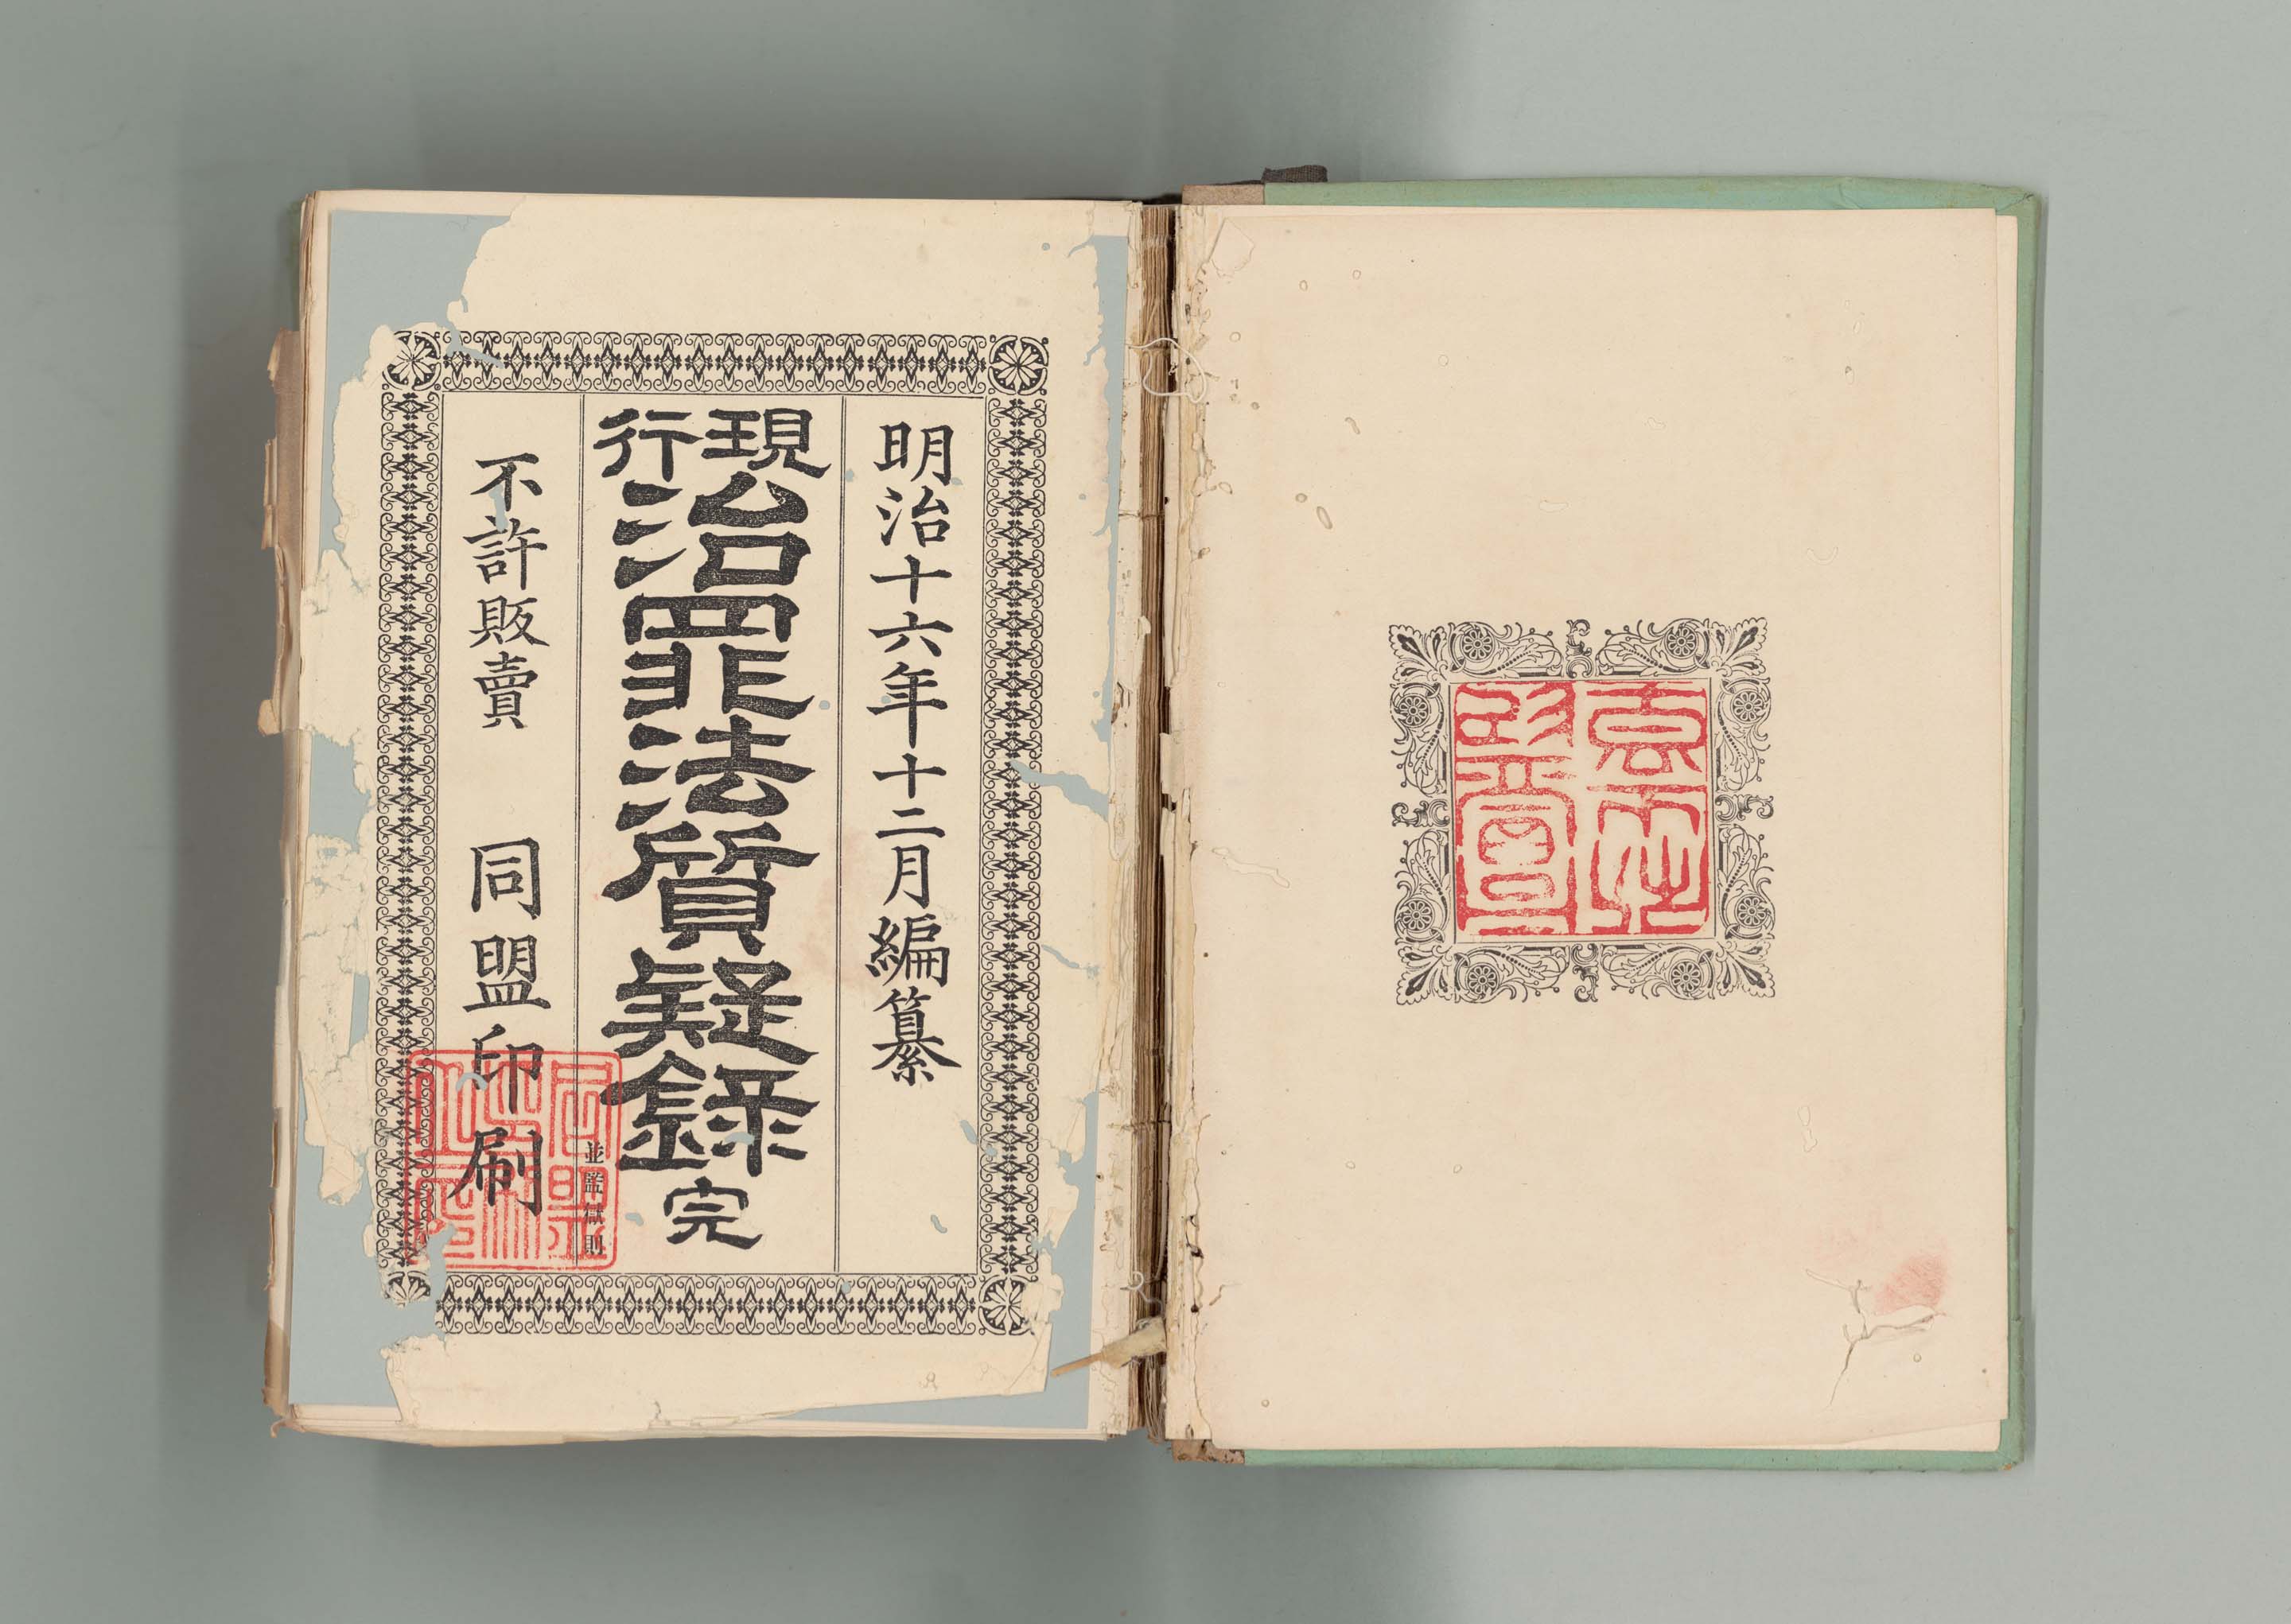 明治十六年十二月編纂
現行治罪法質疑録完
並監獄則
不許販賣 同盟印刷